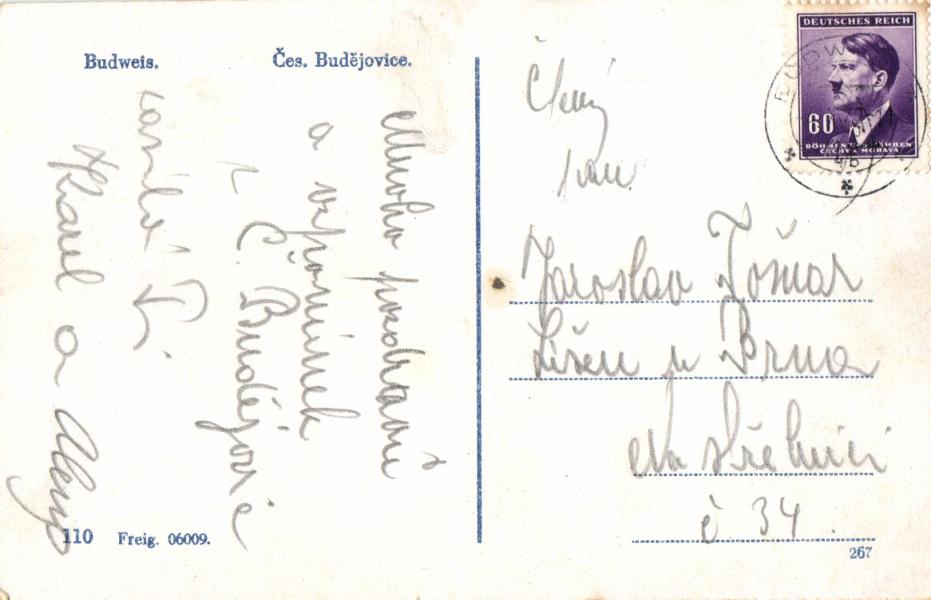 Budweis.
Čes. Budějovice.
Mnoho pozdravů
a vzpomínek
z Č. Budějovic
Karel a
110 Freig. 06009.
Ctěný
pan
Jaroslav Tomar
Líšeň u Brna
Na střelnici
č 34.
267
DEUTSCHES REICH
60
BÖHMEN U. MÄHREN
ČECHY A MORAVA